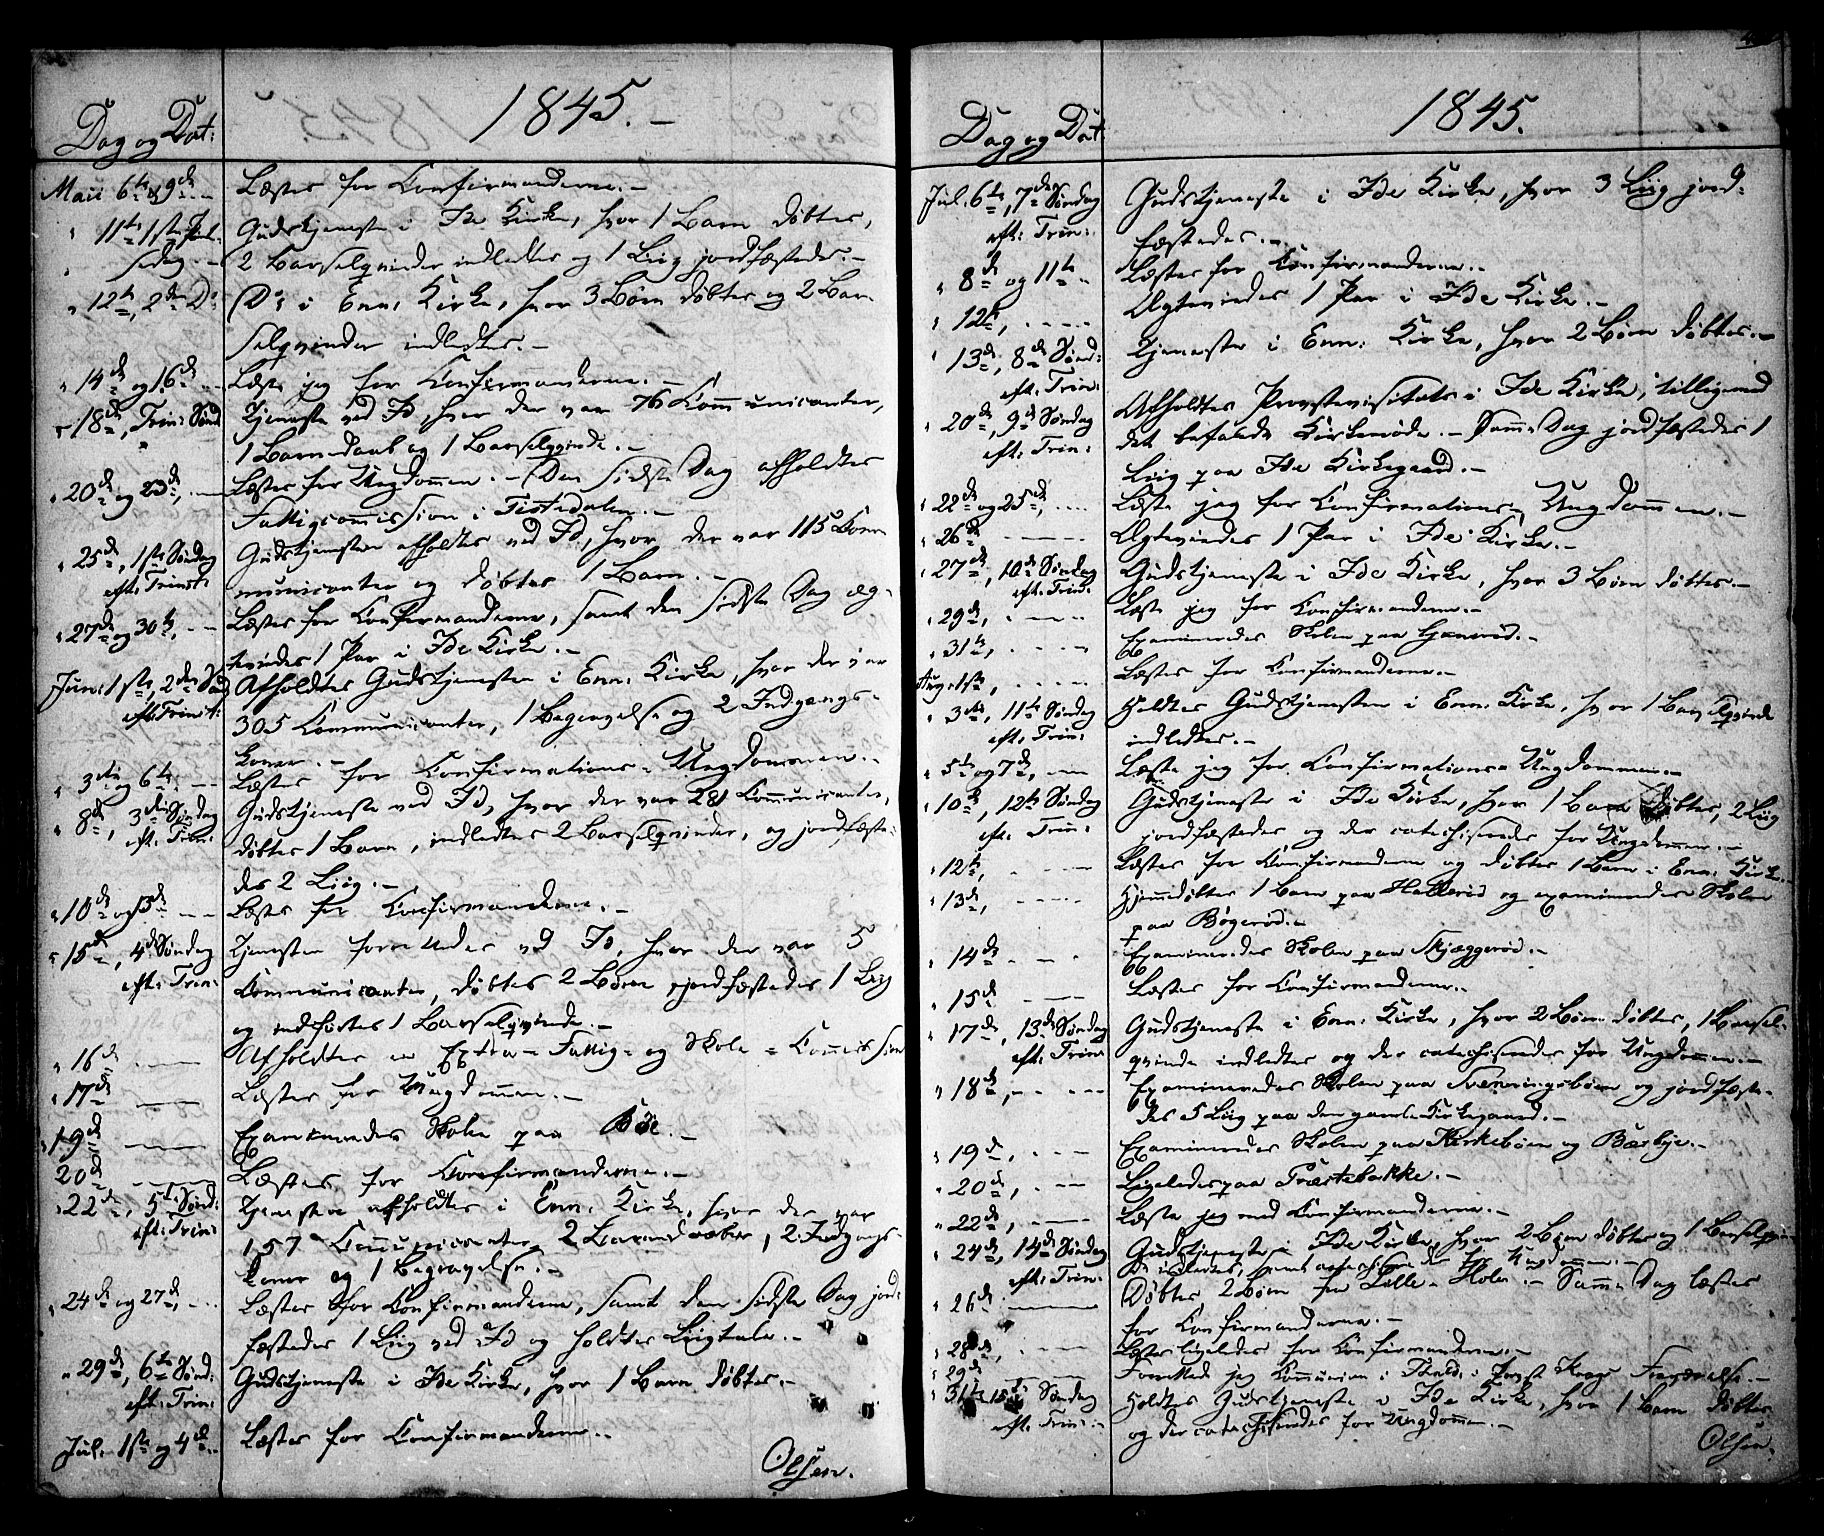 1845.
Dag og Dat:
Maii 6te & 9de Læstes for Confirmanderne.
" 11te, 1ste Gudstjeneste i Ide Kirke, hvor 1 Barn døbtes,
2 Barselqvinder indledtes og 1 Liig jordfæstedes.
" 12te, 2den Do Do i Enn: Kirke, hvor 3 Børn døbtes og 2 Bar-
selqvinder indledtes.
" 14de og 16de Læste jeg for Confirmanderne.
" 18de, Trin: Sønd Tjeneste ved Id, hvor der var 76 Communicanter,
1 Barnedaab og 1 Barselqvinde.
" 20de og 23de, Læstes for Ungdommen. Den sidste Dag afholdtes
Fattigcommission i Tistedalen.
" 25de, 1ste Søndag Gudstjenesten afholdtes ved Id, hvor der var 115 Com-
eft: Trinit: municanter og døbtes 1 Barn.
" 27de og 30te, Læstes for Confirmanderne, samt den sidste Dag æg-
teviedes 1 Par i Ide Kirke.
Jun: 1ste, 2den Sønd Afholdtes Gudstjenesten i Enn: Kirke, hvor der var
eft: Trinit: 305 Communicanter, 1 Begravelse og 2 Indgangs-
koner.
" 3die og 6te Læstes for Confirmations-Ungdommen.
" 8de, 3die Søndag Gudstjeneste ved Id, hvor der var 281 Communicanter,
eft. Trin: døbtes 1 Barn, indledtes 2 Barselqvinder, og jordfæste-
des 2 Liig.
" 10de og 13de Læstes for Confirmanderne.
" 15de, 4de Søndag Tjenesten forrettedes ved Id, hvor der var 5
eft: Trin: Communicanter, døbtes 2 Børn, jordfæstedes 1 Liig
og indførtes 1 Barselqvinde.
" 16de Afholdtes en Extra-Fattig- og Skole-Commission
" 17de Læstes for Ungdommen.
" 19de Examineredes Skolen paa Bøe.
20de Læstes for Confirmanderne.
" 22de, 5te Sønd: Tjenesten afholdtes i Enn: Kirke, hvor der var
eft: Trin: 157 Communicanter, 2 Barnedaaber, 2 Indgangs-
koner og 1 Begravelse.
" 24de og 27de, Læstes for Confirmanderne, samt den sidste Dag jord-
fæstedes 1 Liig ved Id og holdtes Liigtale.
" 29de, 6te Sønd: Gudstjeneste i Ide Kirke, hvor 1 Barn døbtes.
eft: Trin:
Jul. 1ste og 4de Læstes for Confirmanderne.
Olsen.
1845.
Dag og Dat:
Jul. 6te, 7de Søndag Gudstjeneste i Ide Kirke, hvor 3 Liig jord-
eft: Trin: fæstedes.
" 8de og 11te Læstes for Confirmanderne.
" 12te, Ægteviedes 1 Par i Ide Kirke.
" 13de, 8de Sønd: Tjeneste i Enn: Kirke, hvor 2 Børn døbtes.
eft: Trin:
" 20de, 9de Søndag Afholdtes Provstevisitats i Ide Kirke, tilligemed
eft: Trin: det befalede Kirkemøde. Samme Dag jordfæstedes 1
Liig paa Ide Kirkegaard.
" 22de og 25de, Læste jeg for Confirmations-Ungdommen.
" 26de Ægteviedes 1 Par i Ide Kirke.
" 27de, 10de Søndag Gudstjeneste i Ide Kirke, hvor 3 Børn døbtes.
eft: Trin:
" 29de, Læste jeg for Confirmanderne.
" 31te, Examineredes Skolen paa
Aug: 1ste, Læstes for Confirmanderne.
" 3die, 11te Søndag Holdtes Gudstjenesten i Enn: Kirke, hvor 1 Barselqvinde
eft: Trin: indledtes.
" 5te og 7de, Læste jeg for Confirmations-Ungdommen.
" 10de, 12te Søndag Gudstjeneste i Ide Kirke, hvor 1 Barn døbtes, 2 Liig
eft: Trin: jordfæstedes og der catechiseredes for Ungdommen.
" 12te, Læstes for Confirmanderne og døbtes 1 Barn i Enn: Kirke.
" 13de, Hjemmedøbtes 1 Barn paa Hallerød og examineredes Skolen
paa Bøgerød.
" 14de Examineredes Skolen paa Skjæggerød.
" 15de Læstes for Confirmanderne.
" 17de, 13de Søndag Gudstjeneste i Enn: Kirke, hvor 2 Børn døbtes, 1 Barsel-
eft: Trin: qvinde indledtes og der catechiseredes for Ungdommen.
" 18de, Examineredes Skolen paa Svenningsbøen og jordfæste-
des 5 Liig paa den gamle Kirkegaard.
" 19de, Examineredes Skolen paa Kirkebøen og Bærbye.
" 20de, Ligeledes paa Præstebakke.
" 22de, Læste jeg med Confirmanderne.
" 24de, 14de Søndag Gudstjeneste i Ide Kirke, hvor 2 Børn døbtes og 1 Barselqvin-
eft: Trin: de indledtes, samt catechiseredes for Ungdommen.
" 26de Døbtes 2 Børn fra Lille-Holen. Samme Dag læstes
for Confirmanderne.
" 28de, Læstes ligeledes for Confirmanderne.
" 29de Forrettede jeg Communion i i Provst Fraværelse.
" 31te, 15de Søndag Holdtes Gudstjeneste i Ide Kirke, hvor 1 Barn døbtes
eft: Trin: og der catechiseredes for Ungdommen.
Olsen.